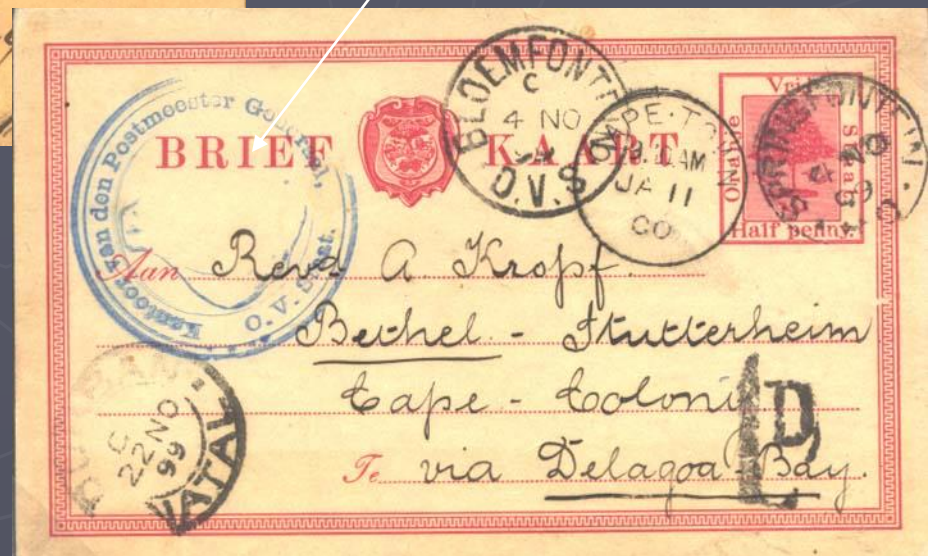 Kantoor van den Postmeester Generaal,
O. V. Staat.
BRIEF KAART
BLOEMFONTEIN
C
4 NO
O.V.S
CAPE·TOWN
AM
JA 11
00
Vrij
Oranje
Staat
Half penny.
SPRINGFONTEIN
NO
99
Aan Revd A. Kropf.
Bethel - Stutterheim
Cape - Colony
Te via Delagoa-Bay.
DURBAN
C
22 NO
99
NATAL
1D